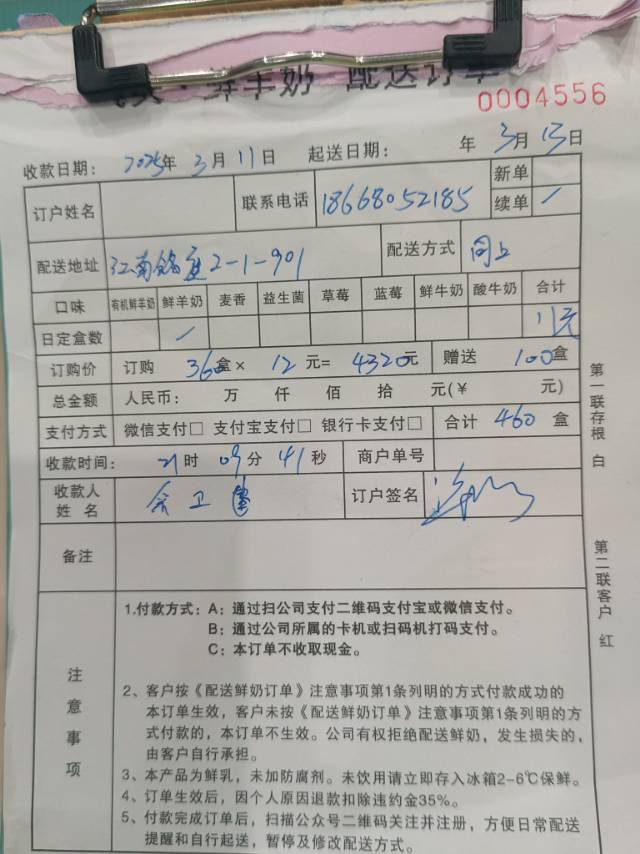 鲜羊奶 配送订单
0004556
收款日期: 2025年 3月 11日 起送日期: 年 3月 13日
订户姓名 联系电话 18668052185 新单
续单 /
配送地址 江南铭庭2-1-901 配送方式 同上
口味 有机鲜羊奶 鲜羊奶 麦香 益生菌 草莓 蓝莓 鲜牛奶 酸牛奶 合计
日定盒数 / 11元
订购价 订购 360盒× 12元= 4320元 赠送 100盒
总金额 人民币: 万 仟 佰 拾 元(¥ 元)
支付方式 微信支付□ 支付宝支付□ 银行卡支付□ 合计 460 盒
收款时间: 21时 09分 41秒 商户单号
收款人
姓 名 余卫 订户签名
备注
注意事项
1.付款方式: A: 通过扫公司支付二维码支付宝或微信支付。
B: 通过公司所属的卡机或扫码机打码支付。
C: 本订单不收取现金。
2、客户按《配送鲜奶订单》注意事项第1条列明的方式付款成功的
本订单生效,客户未按《配送鲜奶订单》注意事项第1条列明的方
式付款的,本订单不生效。公司有权拒绝配送鲜奶,发生损失的,
由客户自行承担。
3、本产品为鲜乳,未加防腐剂。未饮用请立即存入冰箱2-6℃保鲜。
4、订单生效后,因个人原因退款扣除违约金35%。
5、付款完成订单后,扫描公众号二维码关注并注册,方便日常配送
提醒和自行起送,暂停及修改配送方式。
第一联存根 白
第二联客户 红